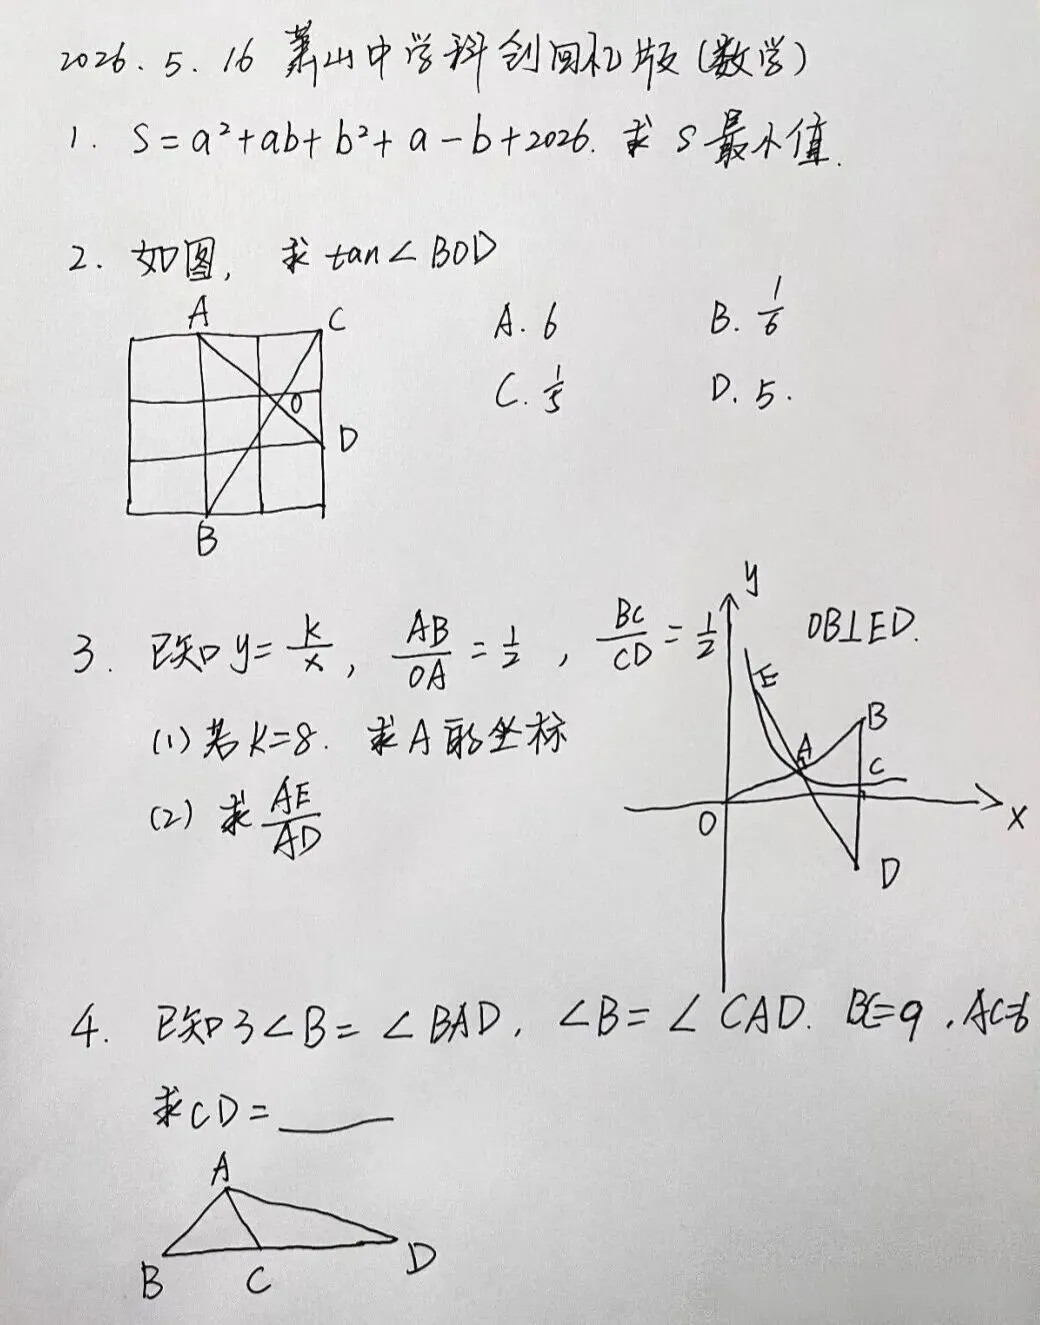 2026.5.16 萧山中学科创回忆版(数学)
1. S=a²+ab+b²+a-b+2026. 求S最小值.
2. 如图, 求tan∠BOD
A. 6 B. 1/6
C. 1/5 D. 5.
A C
O
D
B
3. 已知y=k/x, AB/OA=1/2, BC/CD=1/2 OB⊥ED.
(1) 若k=8. 求A的坐标
(2) 求AE/AD
y
E
B
A
C
O x
D
4. 已知3∠B=∠BAD, ∠B=∠CAD. BC=9, AC=6
求CD=____
A
B C D